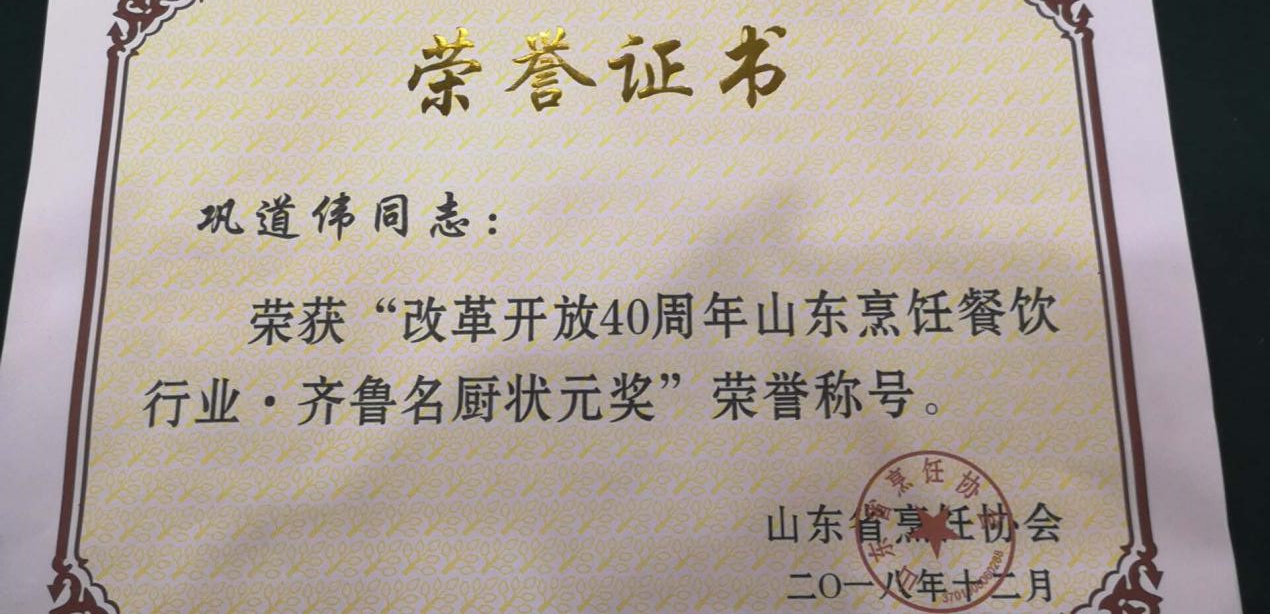 荣誉证书
巩道伟同志：
荣获“改革开放40周年山东烹饪餐饮
行业·齐鲁名厨状元奖”荣誉称号。
山东省烹饪协会
二〇一八年十二月